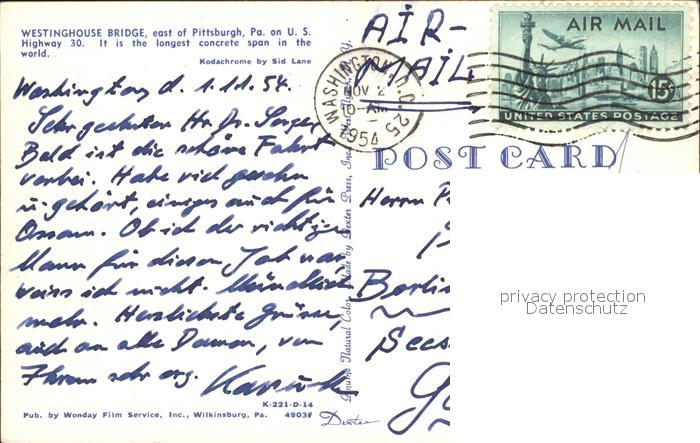 WESTINGHOUSE BRIDGE, east of Pittsburgh, Pa. on U. S.
Highway 30. It is the longest concrete span in the
world.
Kodachrome by Sid Lane
Washington d. 1.11.54.
Sehr geehrter Hr. Dr.
Bald ist die schöne Fahrt
vorbei. Habe viel gesehen
u. gehört, einiges auch für
Ob ich der richtige
Mann für diesen Job war
weiss ich nicht. Mündlich
mehr. Herzlichste Grüsse,
auch an alle Damen, von
Ihrem sehr erg.
K-221-D-14
Pub. by Wonday Film Service, Inc., Wilkinsburg, Pa. 49038
Dexter
Genuine Natural Color Made by Dexter Press, Inc.
AIR-
MAIL
WASHINGTON, D.C. 25
NOV 2
10 AM
1954
AIR MAIL
15¢
UNITED STATES POSTAGE
POST CARD
Herrn
Berlin
privacy protection
Datenschutz